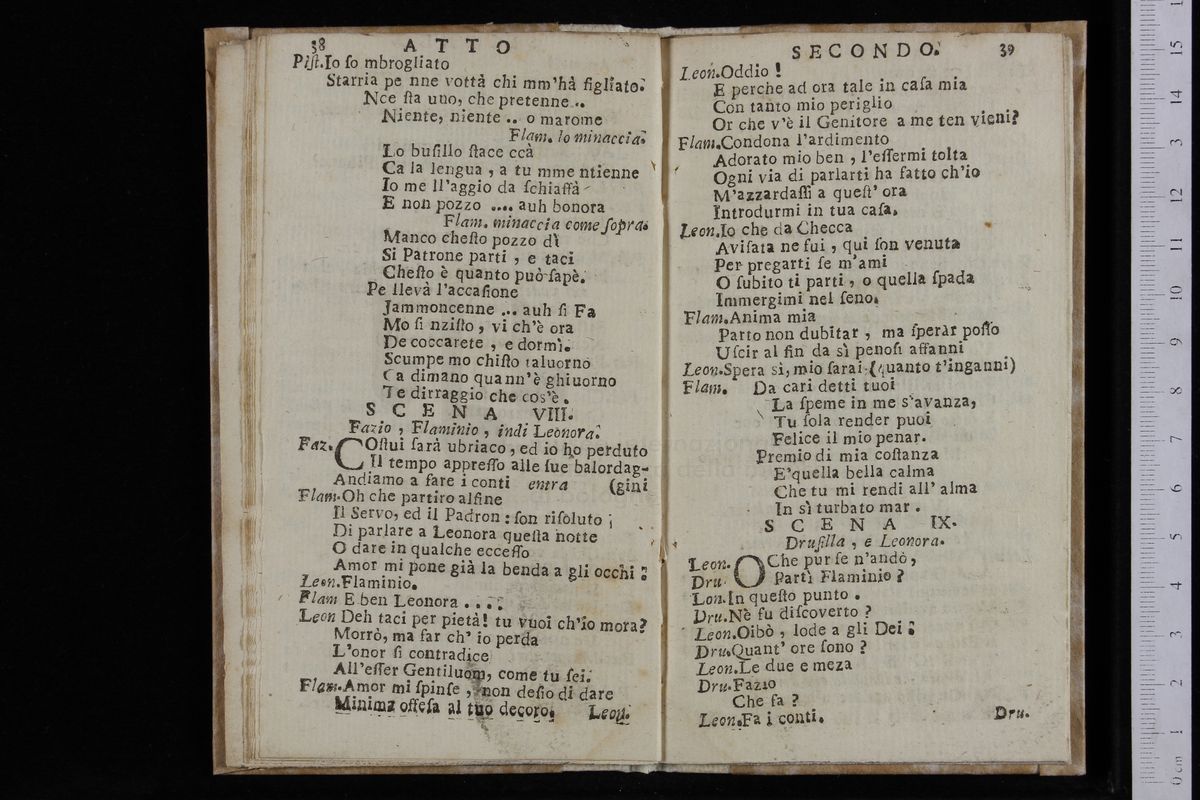 38 ATTO
Piſt.Io ſo mbrogliato
Starria pe nne vottà chi mm'hà figliato.
Nce ſta uno, che pretenne..
Niente, niente .. o marome
Flam. lo minaccia.
Lo buſillo ſtace ccà
Ca la lengua , a tu mme ntienne
Io me ll'aggio da ſchiaffà
E non pozzo .... auh bonora
Flam. minaccia come ſopra.
Manco cheſto pozzo dì
Si Patrone parti , e taci
Cheſto è quanto può ſapè.
Pe llevà l'accaſione
Jammoncenne ... auh ſi Fa
Mo ſi nziſto , vi ch'è ora
De coccarete , e dormì.
Scumpe mo chiſto taluorno
Ca dimano quann'è ghiuorno
Te dirraggio che cos'è.
SCENA VIII.
Fazio , Flaminio , indi Leonora.
Faz. COſtui ſarà ubriaco, ed io ho perduto
Il tempo appreſſo alle ſue balordag-
Andiamo a fare i conti entra (gini
Flam.Oh che partiro alfine
Il Servo, ed il Padron : ſon riſoluto ;
Di parlare a Leonora queſta notte
O dare in qualche ecceſſo
Amor mi pone già la benda a gli occhi :
Leon.Flaminio.
Flam E ben Leonora ....
Leon Deh taci per pietà! tu vuoi ch'io mora?
Morrò, ma far ch' io perda
L'onor ſi contradice
All'eſſer Gentiluom, come tu ſei.
Flam.Amor mi ſpinſe , non deſio di dare
Minima offeſa al tuo decoro. Leon.
SECONDO. 39
Leon.Oddio !
E perche ad ora tale in caſa mia
Con tanto mio periglio
Or che v'è il Genitore a me ten vieni?
Flam.Condona l'ardimento
Adorato mio ben , l'eſſermi tolta
Ogni via di parlarti ha fatto ch'io
M'azzardaſſi a queſt' ora
Introdurmi in tua caſa.
Leon.Io che da Checca
Aviſata ne fui , qui ſon venuta
Per pregarti ſe m'ami
O ſubito ti parti , o quella ſpada
Immergimi nel ſeno.
Flam.Anima mia
Parto non dubitar , ma ſperàr poſſo
Uſcir al fin da sì penoſi affanni
Leon.Spera sì, mio ſarai (quanto t'inganni)
Flam. Da cari detti tuoi
La ſpeme in me s'avanza,
Tu ſola render puoi
Felice il mio penar.
Premio di mia coſtanza
E'quella bella calma
Che tu mi rendi all' alma
In sì turbato mar .
SCENA IX.
Druſilla , e Leonora.
Leon. OChe pur ſe n'andò,
Dru. Partì Flaminio ?
Lon.In queſto punto .
Dru.Nè fu diſcoverto ?
Leon.Oibò , lode a gli Dei :
Dru.Quant' ore ſono ?
Leon.Le due e meza
Dru.Fazio
Che fa ?
Leon.Fa i conti. Dru.
0 cm 1 2 3 4 5 6 7 8 9 10 11 12 13 14 15